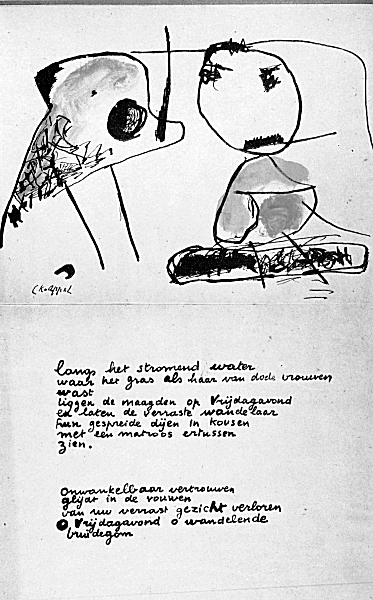 C.K. Appel
langs het stromend water
waar het gras als haar van dode vrouwen
wast
liggen de maagden op Vrijdagavond
en laten de verraste wandelaar
hun gespreide dijen in kousen
met een matroos ertussen
zien.
Onwankelbaar vertrouwen
glijdt in de vouwen
van uw verrast gezicht verloren
O Vrijdagavond o wandelende
bruidegom